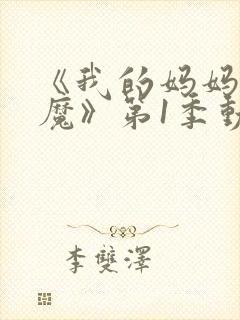 《我的妈妈
魔》第1季動
李雙澤